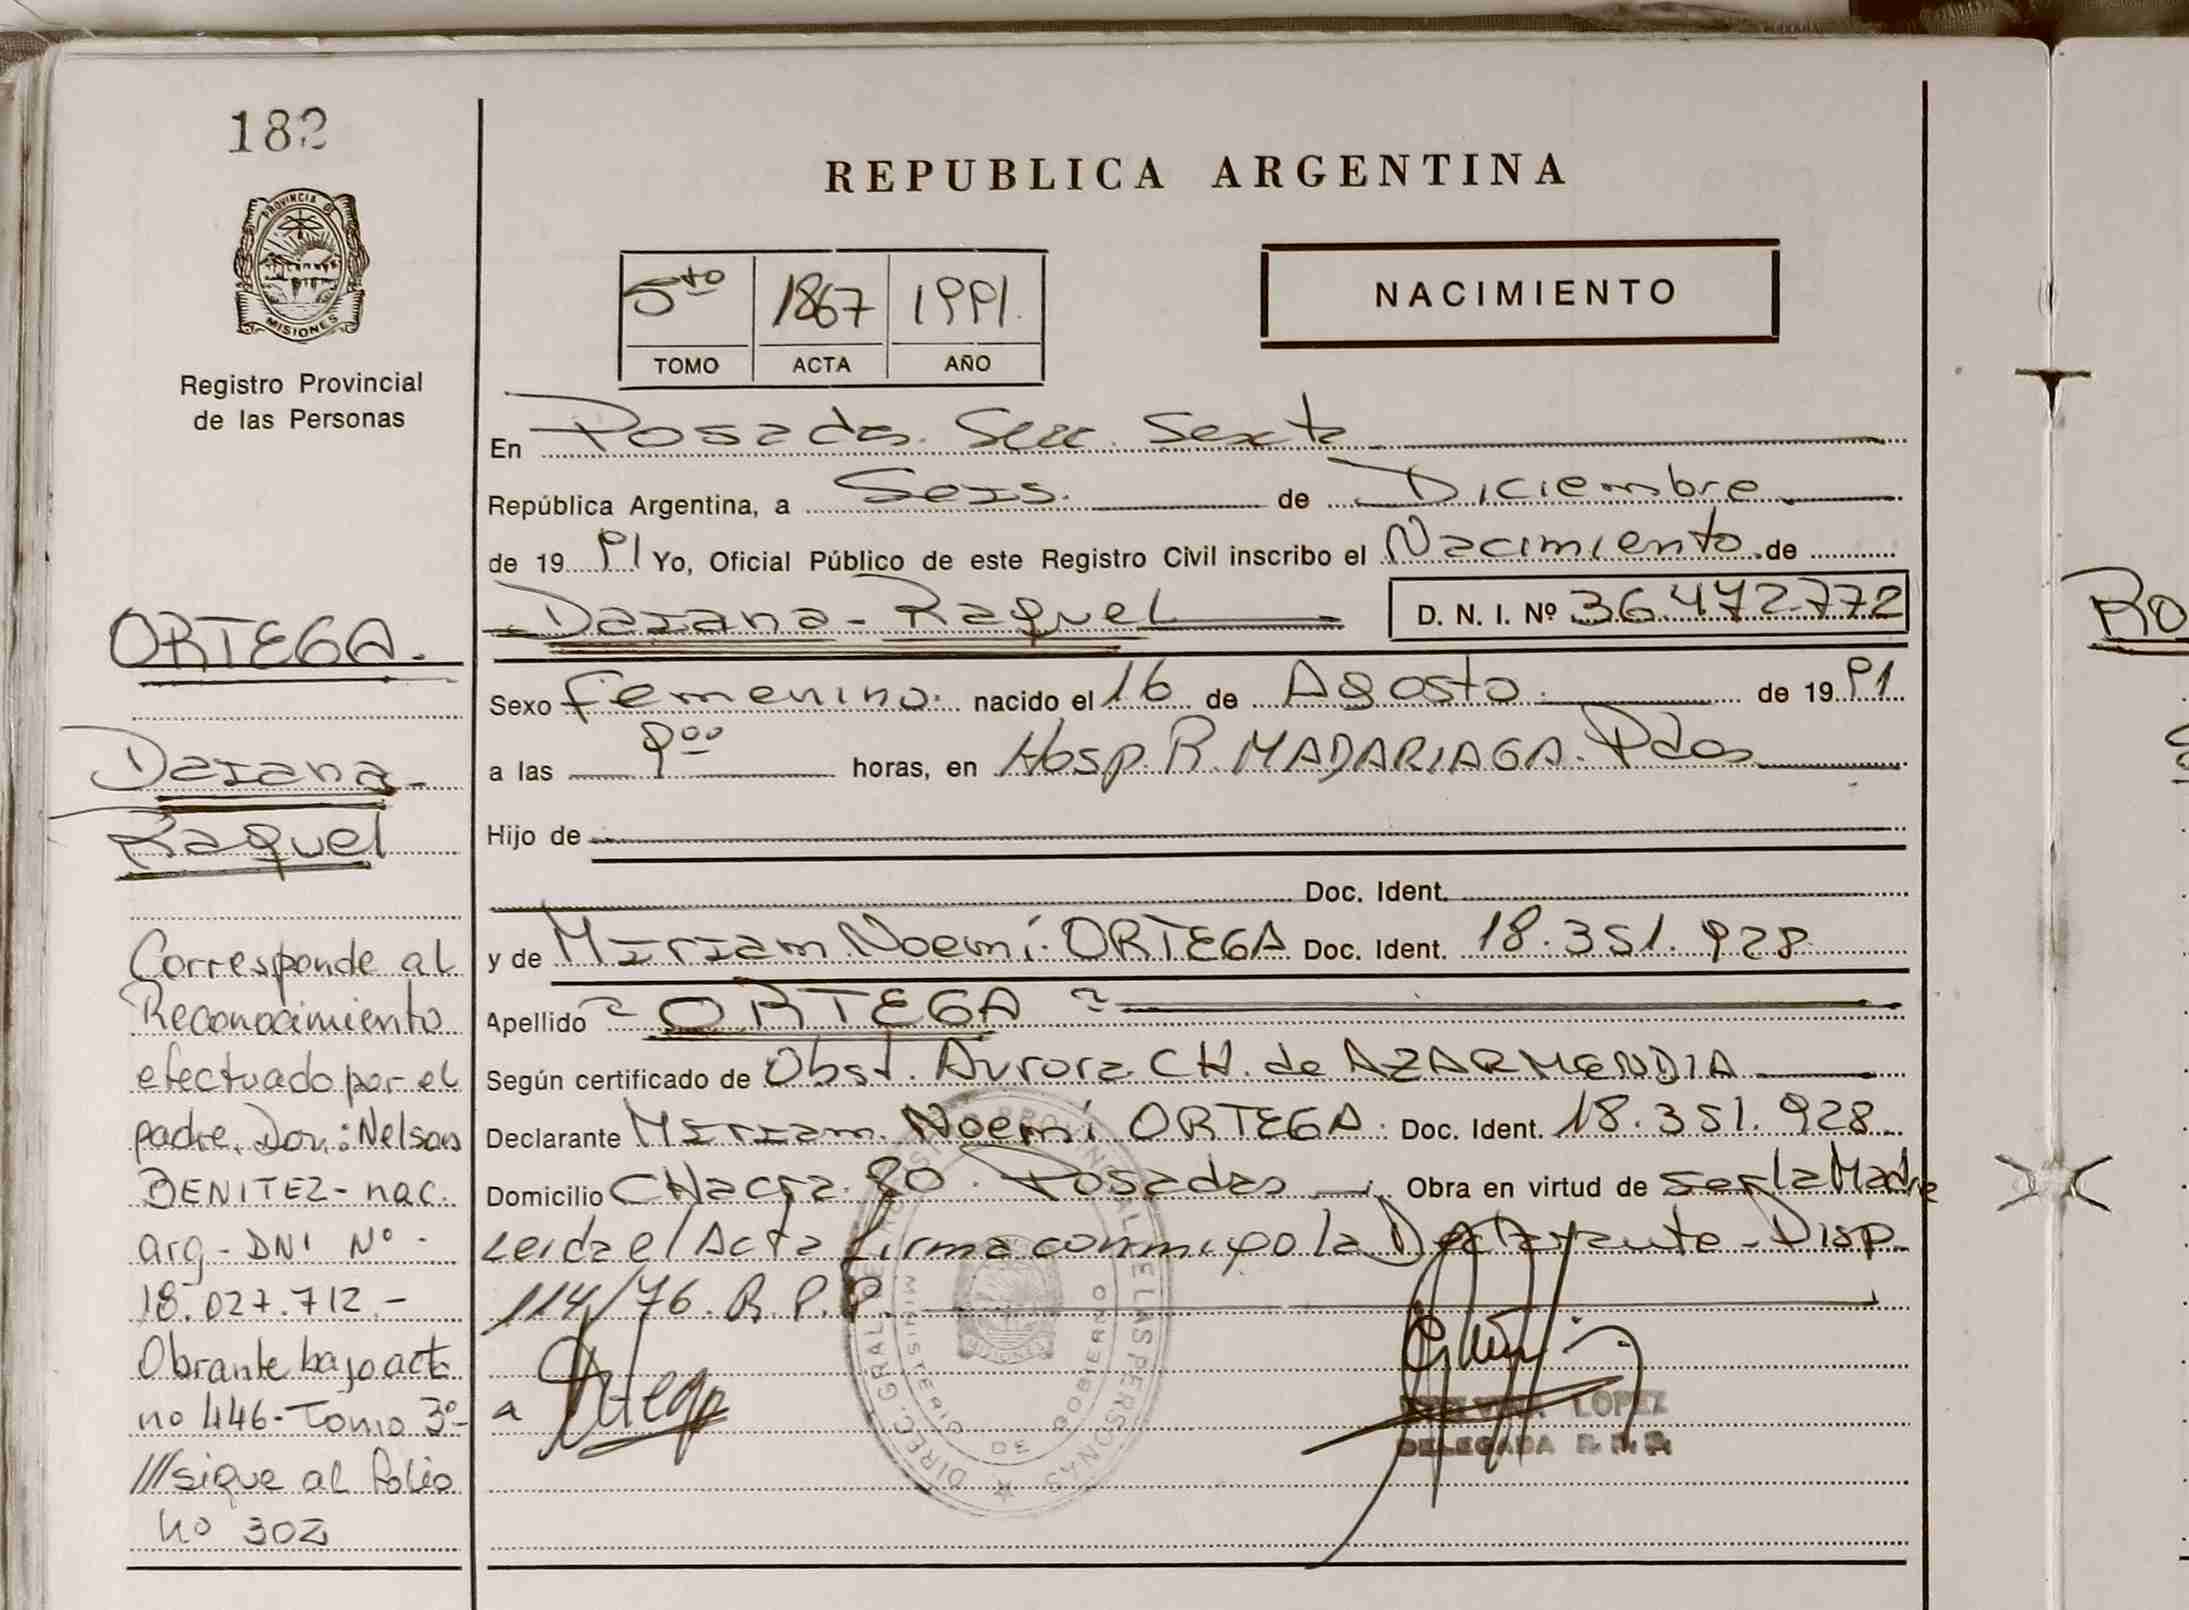 182
PROVINCIA DE
MISIONES
Registro Provincial
de las Personas
ORTEGA.
Daiana-
Raquel
Corresponde al
Reconocimiento
efectuado por el
padre. Don.: Nelson
BENITEZ- nac.
arg- DNI Nº -
18.027.712.-
Obrante bajo acta
no 446-Tomo 3º-
///sigue al folio
no 302
REPUBLICA ARGENTINA
5to 1867 1991.
TOMO ACTA AÑO
NACIMIENTO
En Posadas. Secc. Sexta
República Argentina, a Seis. de Diciembre
de 19 91 Yo, Oficial Público de este Registro Civil inscribo el Nacimiento de
Daiana-Raquel D. N. I. Nº 36.472.772
Sexo femenino. nacido el 16 de Agosto. de 19 91
a las 9 00 horas, en Hosp. R. MADARIAGA. Pdas
Hijo de
Doc. Ident.
y de Miriam Noemí. ORTEGA Doc. Ident. 18.351.928
Apellido ORTEGA
Según certificado de Obst. Aurora CH. de AZARMENDIA
Declarante Miriam. Noemí ORTEGA. Doc. Ident. 18.351.928
Domicilio CHacra. 80. Posadas Obra en virtud de ser la Madre
Leida el Acta firma conmigo la Declarante-Disp.
114/76. R.P.P.
DIREC. GRAL. DE REGISTRO PROVINCIAL DE LAS PERSONAS
MINISTERIO DE GOBIERNO
LOPEZ
DELEGADA R.P.P.